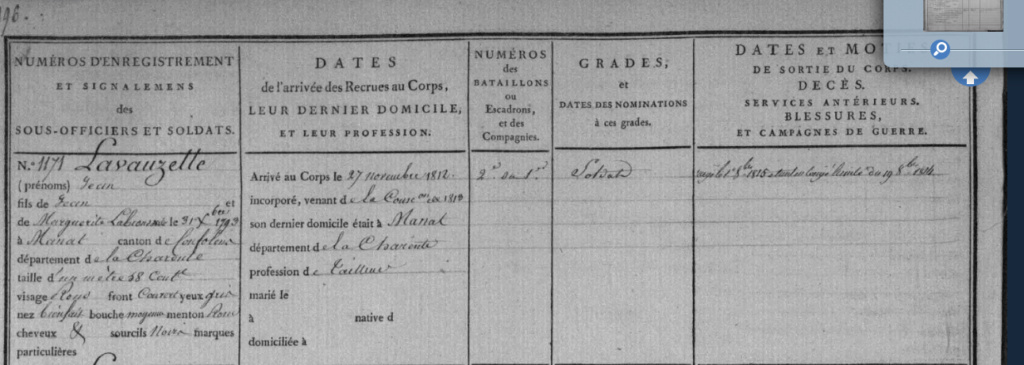 196.
NUMÉROS D'ENREGISTREMENT
ET SIGNALEMENS
des
SOUS-OFFICIERS ET SOLDATS.
DATES
de l'arrivée des Recrues au Corps,
LEUR DERNIER DOMICILE,
ET LEUR PROFESSION.
NUMÉROS
des
BATAILLONS
ou
Escadrons,
et des
Compagnies.
GRADES,
et
DATES DES NOMINATIONS
à ces grades.
DATES ET MOTIFS
DE SORTIE DU CORPS.
DECÈS.
SERVICES ANTÉRIEURS.
BLESSURES,
ET CAMPAGNES DE GUERRE.
N.° 1171 Lavauzelle
(prénoms) Jean
fils de Jean et
de Marguerite le 31 Xbre 1793
à Manat canton de Confolens
département de la Charente
taille d'un mètre 58 Cent
visage Rond front Couvert yeux gris
nez bienfait bouche moyenne menton Rond
cheveux & sourcils Noirs marques
particulières
Arrivé au Corps le 27 novembre 1812
incorporé, venant de la Cons.on de 1813
son dernier domicile était à Manat
département de la Charente
profession de Tailleur
marié le
à native d
domiciliée à
2e du 1er
Soldat
8bre 1815 du 19 8bre 1814